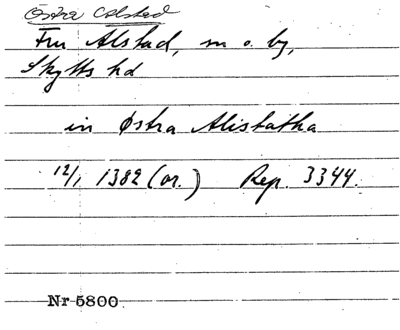 Östra Alstad
Fru Alstad, sn o. by,
Skytts hd
in Østra Alistatha
12/1 1382 (or.) Rep. 3344.
Nr 5800